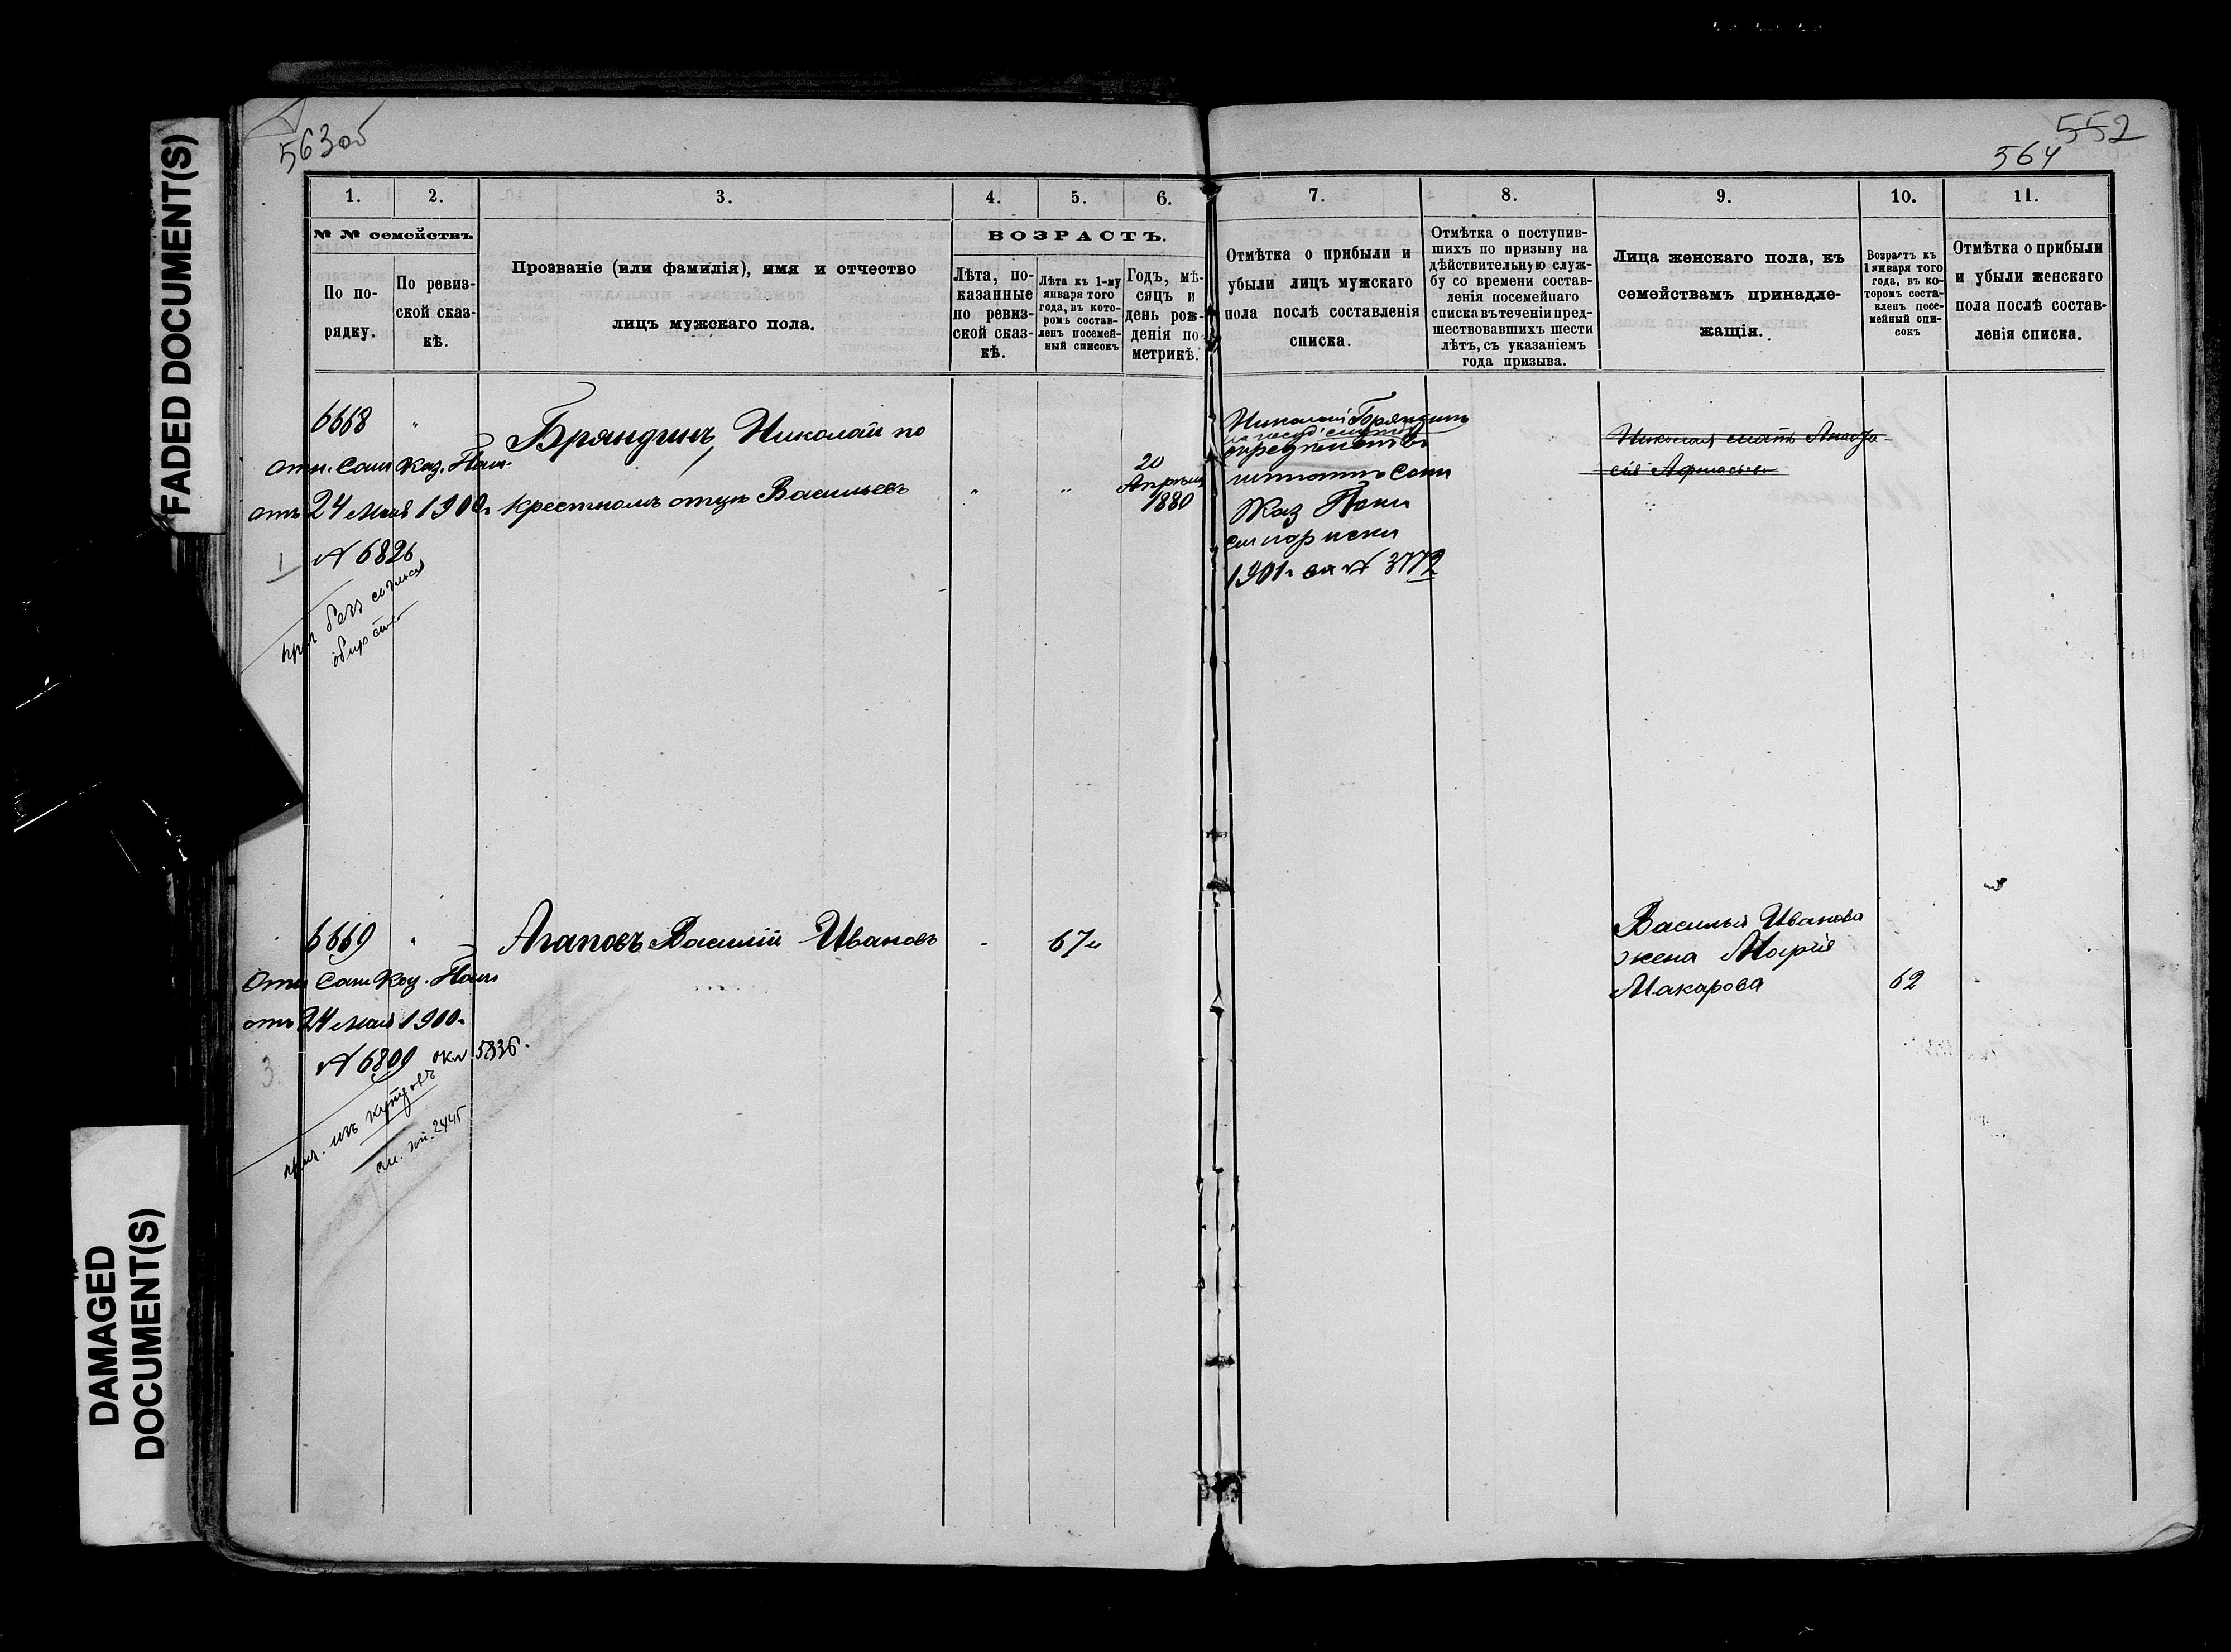 FADED DOCUMENT(S)
DAMAGED
DOCUMENT(S)
563об
552
564
1. 2. 3. 4. 5. 6. 7. 8. 9. 10. 11.
№ № семействъ
По по-
рядку.
По ревиз-
ской сказ-
кѣ.
Прозваніе (или фамилія), имя и отчество
лицъ мужскаго пола.
ВОЗРАСТЪ.
Лѣта, по-
казанные
по ревиз-
ской сказ-
кѣ.
Лѣта къ 1-му
января того
года, въ кото-
ромъ состав-
ленъ посемей-
ный списокъ
Годъ, мѣ-
сяцъ и
день рож-
денія по
метрикѣ.
Отмѣтка о прибыли и
убыли лицъ мужскаго
пола послѣ составленія
списка.
Отмѣтка о поступив-
шихъ по призыву на
дѣйствительную служ-
бу со времени состав-
ленія посемейнаго
списка въ теченіи пред-
шествовавшихъ шести
лѣтъ, съ указаніемъ
года призыва.
Лица женскаго пола, къ
семействамъ принадле-
жащія.
Возрастъ къ
1 января того
года, въ ко-
торомъ соста-
вленъ посе-
мейный спи-
сокъ
Отмѣтка о прибыли
и убыли женскаго
пола послѣ состав-
ленія списка.
6668 "
Отн. Сам Каз. Пал.
отъ 24 Мая 1900г
№ 6826
1
прич безъ согласія
общества
Бряндинъ, Николай по
крестному отцу Васильевъ
" "
20
Апрѣля
1880
Николай Бряндинъ
Сам
Каз Пал
1901г за № 3772
Николая мать Анаста
сія Афанасьева
6669 "
Отн Сам Каз. Пал
отъ 24 Мая 1900г
№ 6809 окл 5836.
3.
прич. изъ купцовъ
см. 2445
Агаповъ Василій Ивановъ
67
Василья Иванова
жена Марія
Макарова
62